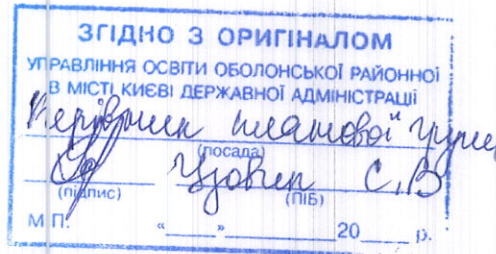 ЗГІДНО З ОРИГІНАЛОМ
УПРАВЛІННЯ ОСВІТИ ОБОЛОНСЬКОЇ РАЙОННОЇ
В МІСТІ КИЄВІ ДЕРЖАВНОЇ АДМІНІСТРАЦІЇ
Керівник планової групи
(посада)
С.В
(підпис) (ПІБ)
М П. "____" ________ 20____ р.